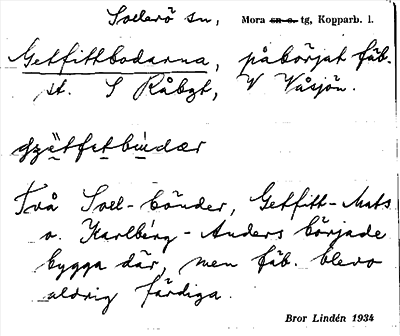 Sollerö sn, Mora sn o. tg, Kopparb. l.
Getfittbodarna, påbörjat fäb.
st. S Råbgt, V Våsjön.
gzätfetbùdær
Två Soll-bönder, Getfitt-Mats
o. Karlbérg-Anders började
bygga där, men fäb. blevo
aldrig färdiga.
Bror Lindén 1934